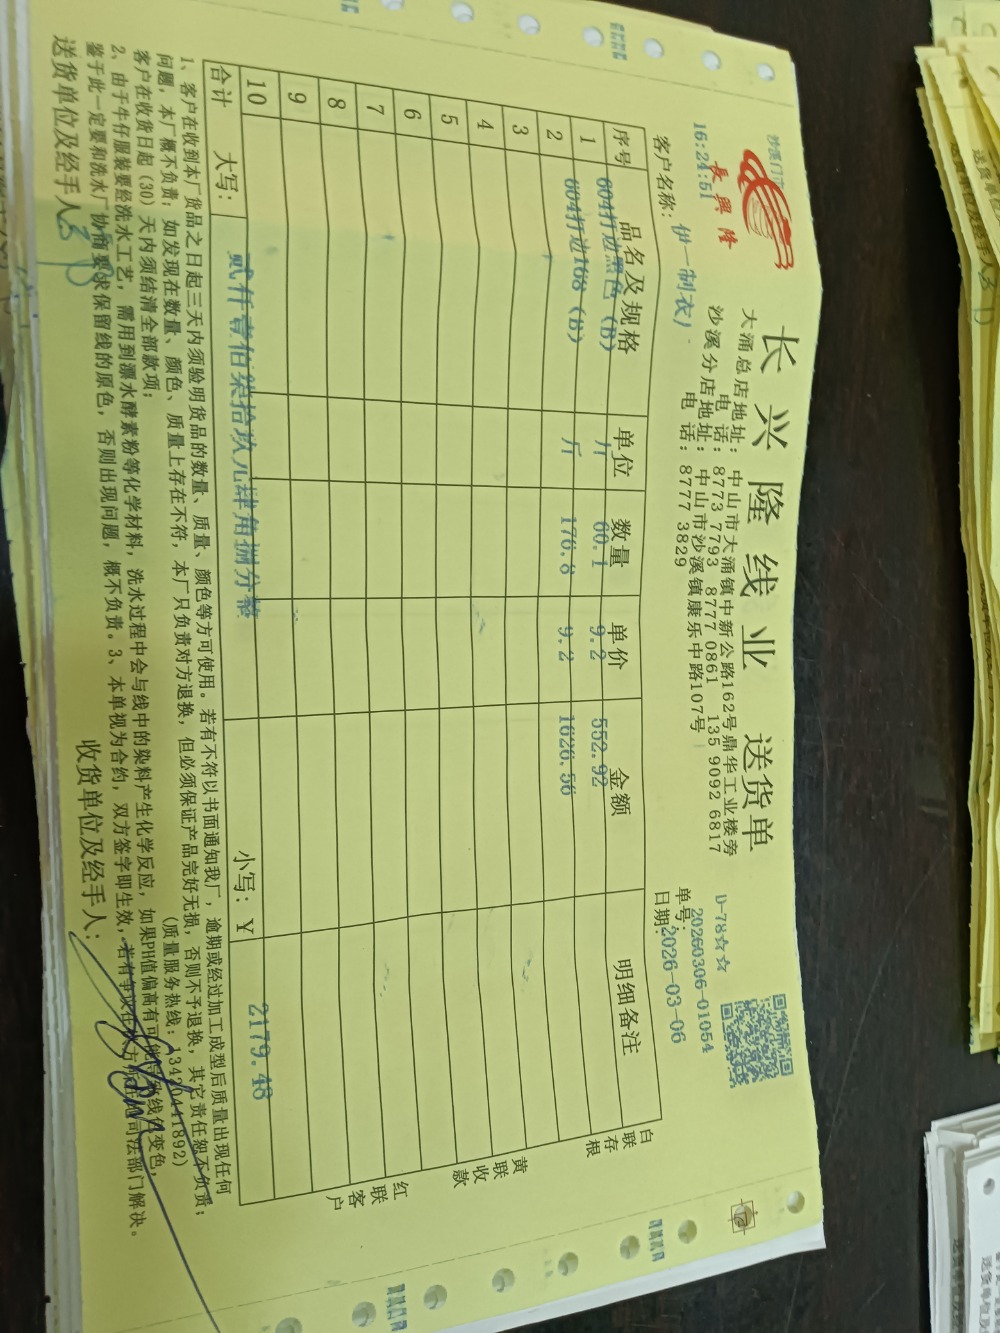 长兴隆线业 送货单
長興隆
16:24:51
大涌总店地址：中山市大涌镇中新公路162号鼎华工业楼旁
电话：8773 7793 8777 0861 135 9092 6817
沙溪分店地址：中山市沙溪镇康乐中路107号
电话：8777 3829
D-78☆☆
单号：20260306-01054
日期：2026-03-06
客户名称：伊一制衣厂
序号 品名及规格 单位 数量 单价 金额 明细备注
1 604打边黑色（B） 斤 60.1 9.2 552.92
2 604打边168（B） 斤 176.8 9.2 1626.56
3
4
5
6
7
8
9
10
合计 大写：贰仟壹佰柒拾玖元肆角捌分整 小写：¥ 2179.48
白联存根
黄联收款
红联客户
1、客户在收到本厂货品之日起三天内须验明货品的数量、质量、颜色等方可使用。若有不符以书面通知我厂，逾期或经过加工成型后质量出现任何
问题，本厂概不负责；如发现在数量、颜色、质量上存在不符，本厂只负责对方退换，但必须保证产品完好无损，否则不予退换，其它责任恕不负责；
客户在收货日起（30）天内须结清全部款项；（质量服务热线：13420441892）
2、由于牛仔服装要经洗水工艺，需用到漂水酵素粉等化学材料，洗水过程中会与线中的染料产生化学反应，如果PH值偏高有可能导致线色变色，
鉴于此一定要和洗水厂协商要求保留线的原色，否则出现问题，概不负责。3、本单视为合约，双方签字即生效，若有争议在我方所在地司法部门解决。
送货单位及经手人： 收货单位及经手人：